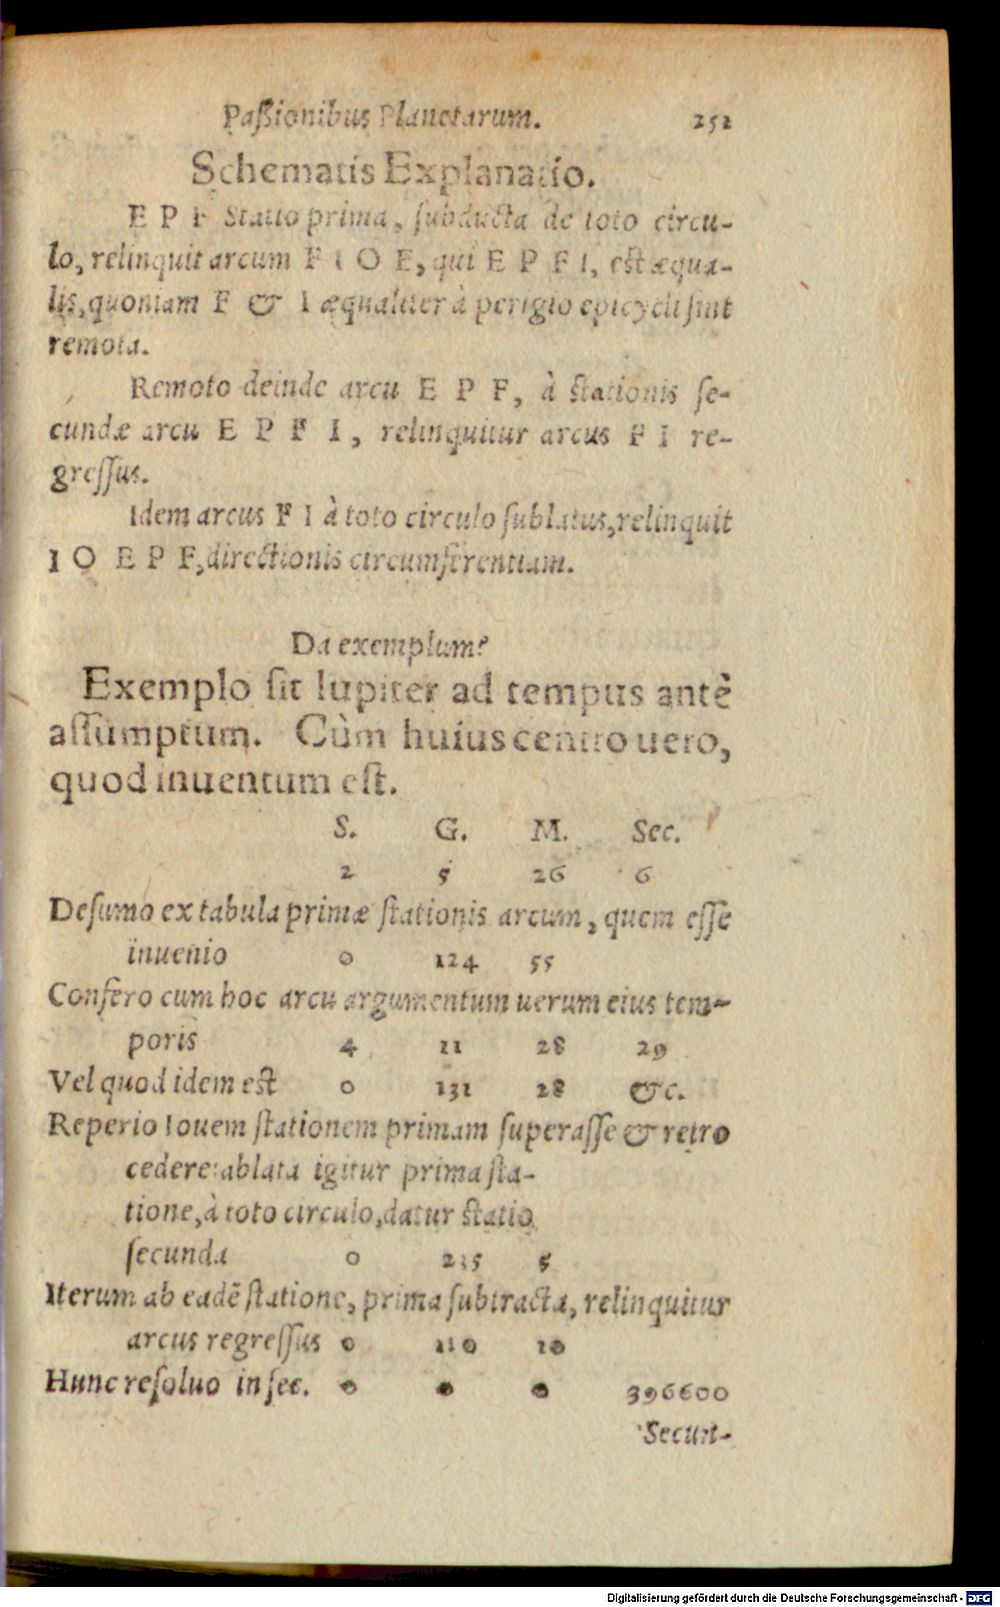 Paßionibus Planetarum. 251
Schematis Explanatio.
E P F Statio prima, subducta de toto circu-
lo, relinquit arcum F I O E, qui E P F I, est æqua-
lis, quoniam F & I æqualiter à perigio epicycli sint
remota.
Remoto deinde arcu E P F, à stationis se-
cundæ arcu E P F I, relinquitur arcus F I re-
gressus.
Idem arcus F I à toto circulo sublatus, relinquit
I O E P F, directionis circumferentiam.
Da exemplum?
Exemplo sit Iupiter ad tempus antè
assumptum. Cùm huius centro uero,
quod inuentum est.
S. G. M. Sec.
2 5 26 6
Desumo ex tabula primæ stationis arcum, quem esse
inuenio 0 124 55
Confero cum hoc arcu argumentum uerum eius tem-
poris 4 11 28 29
Vel quod idem est 0 131 28 &c.
Reperio Iouem stationem primam superasse & retro
cedere: ablata igitur prima sta-
tione, à toto circulo, datur statio
secunda 0 235 5
Iterum ab eadē statione, prima subtracta, relinquitur
arcus regressus 0 110 10
Hunc resoluo in sec. 0 0 0 396600
Secun-
Digitalisierung gefördert durch die Deutsche Forschungsgemeinschaft - DFG